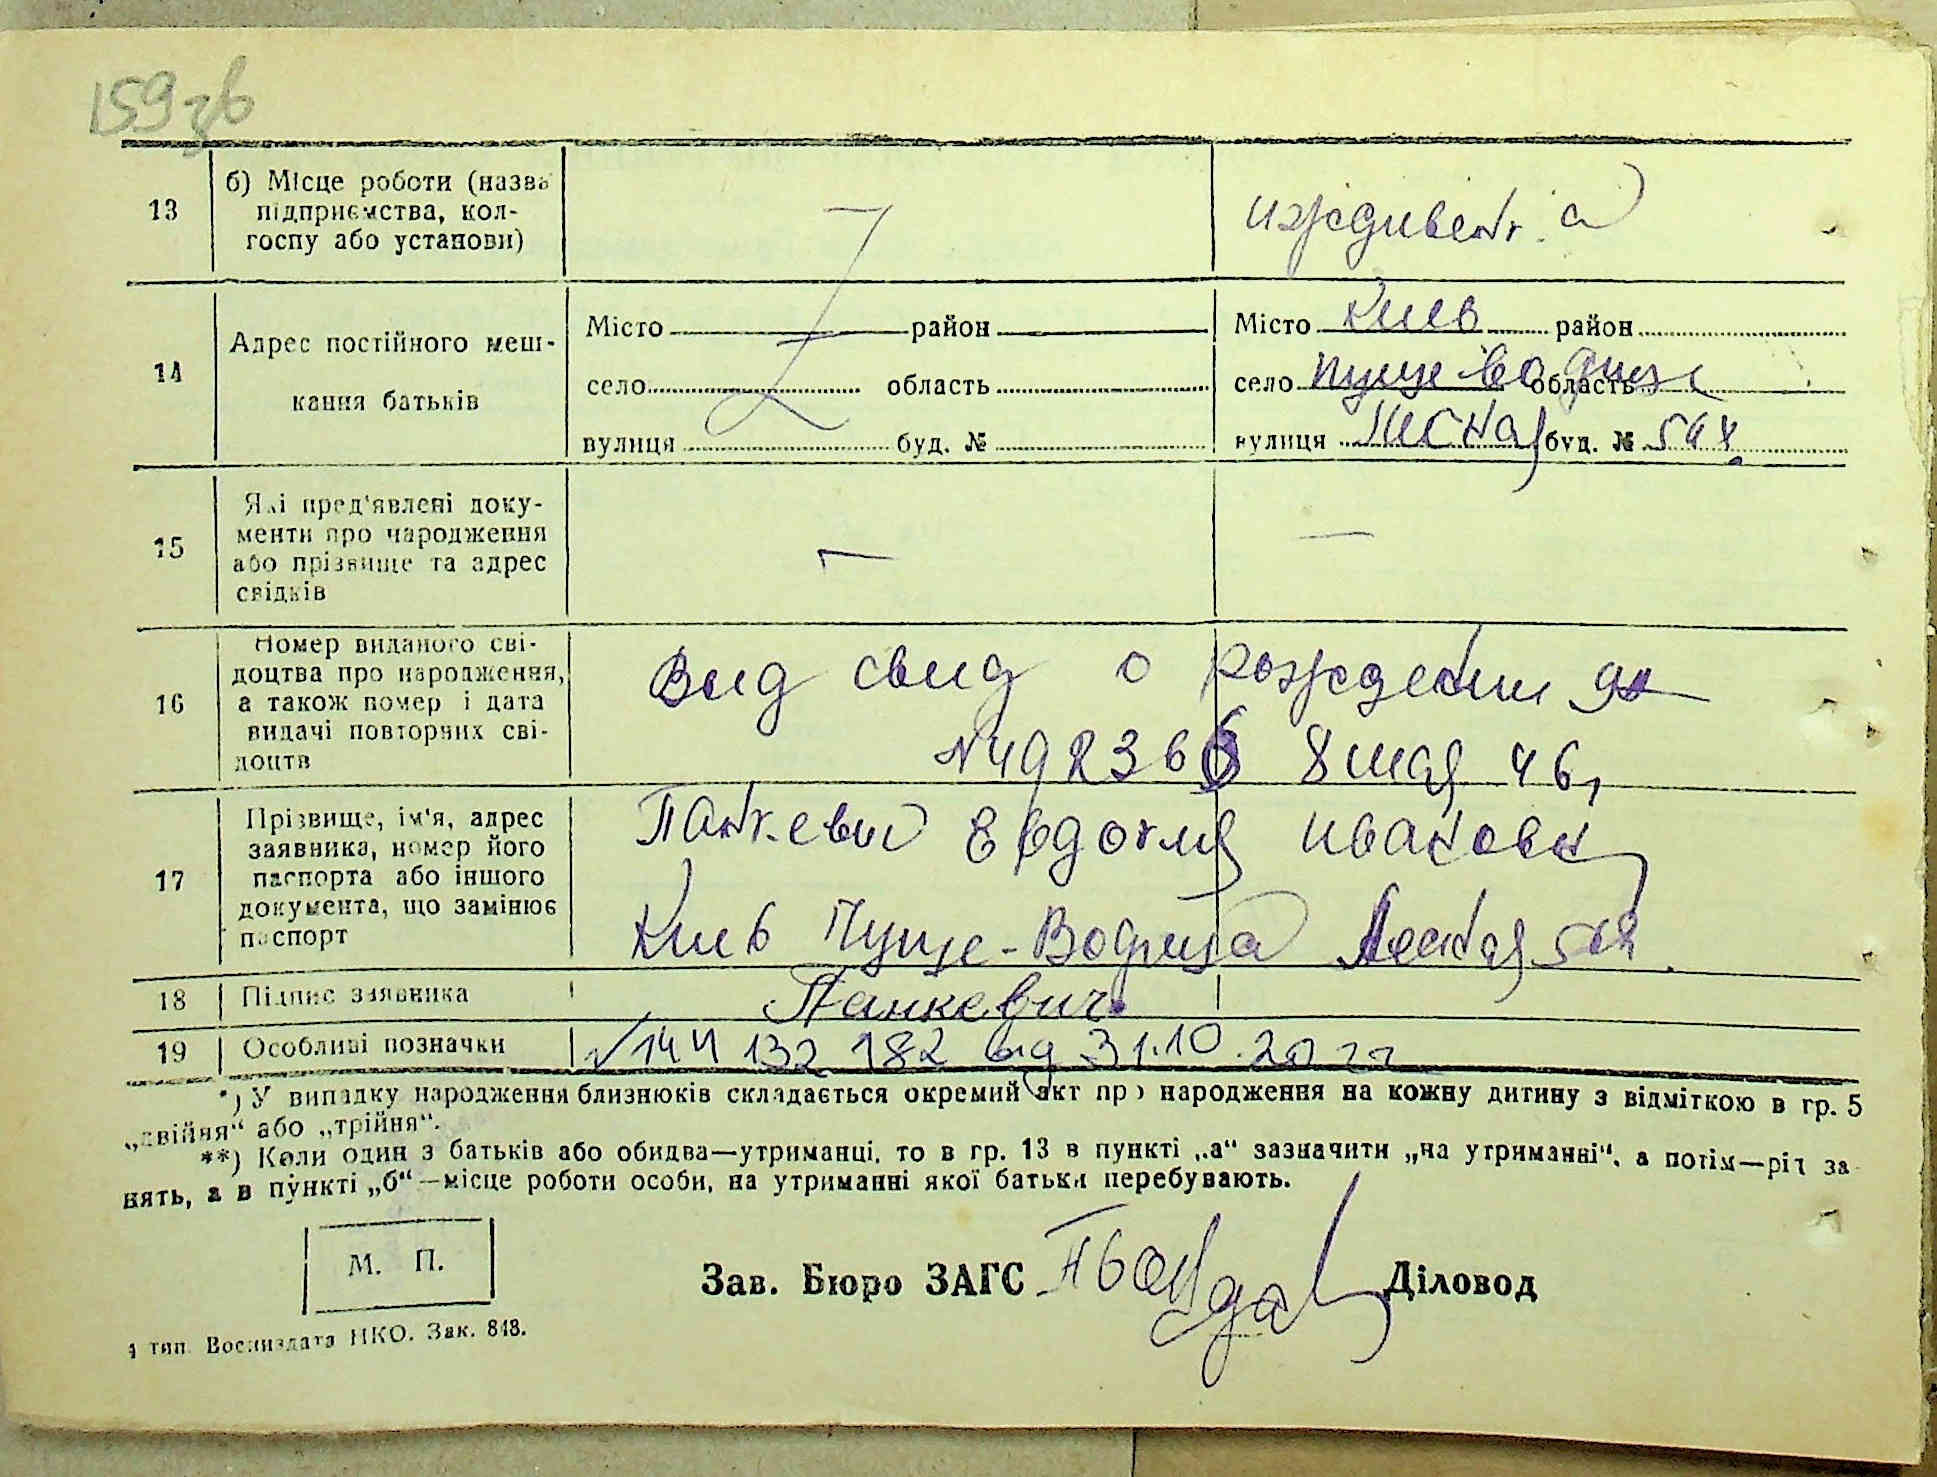 159 зв
13
б) Місце роботи (назва підприємства, колгоспу або установи)
иждивент.а
14
Адрес постійного мешкання батьків
Місто район
село область
вулиця буд. №
Місто Киев район
село Пуще-Водица область
вулиця Лесная буд. №
15
Які пред'явлені документи про народження або прізвище та адрес свідків
—
—
16
Номер виданого свідоцтва про народження, а також номер і дата видачі повторних свідоцтв
Выд свид о рождении
8 мая 46,
17
Прізвище, ім'я, адрес заявника, номер його паспорта або іншого документа, що замінює паспорт
Панкевич Евдокия Ивановн
Киев Пуще-Водица Лесная
18
Підпис заявника
Панкевич
19
Особливі позначки
132 182 від 31.10.20
*) У випадку народження близнюків складається окремий акт про народження на кожну дитину з відміткою в гр. 5
„двійня“ або „трійня“.
**) Коли один з батьків або обидва—утриманці, то в гр. 13 в пункті „а“ зазначити „на утриманні“, а потім—рід за-
нять, а в пункті „б“—місце роботи особи, на утриманні якої батьки перебувають.
М. П.
Зав. Бюро ЗАГС Діловод
тип. Воениздата НКО. Зак. 848.